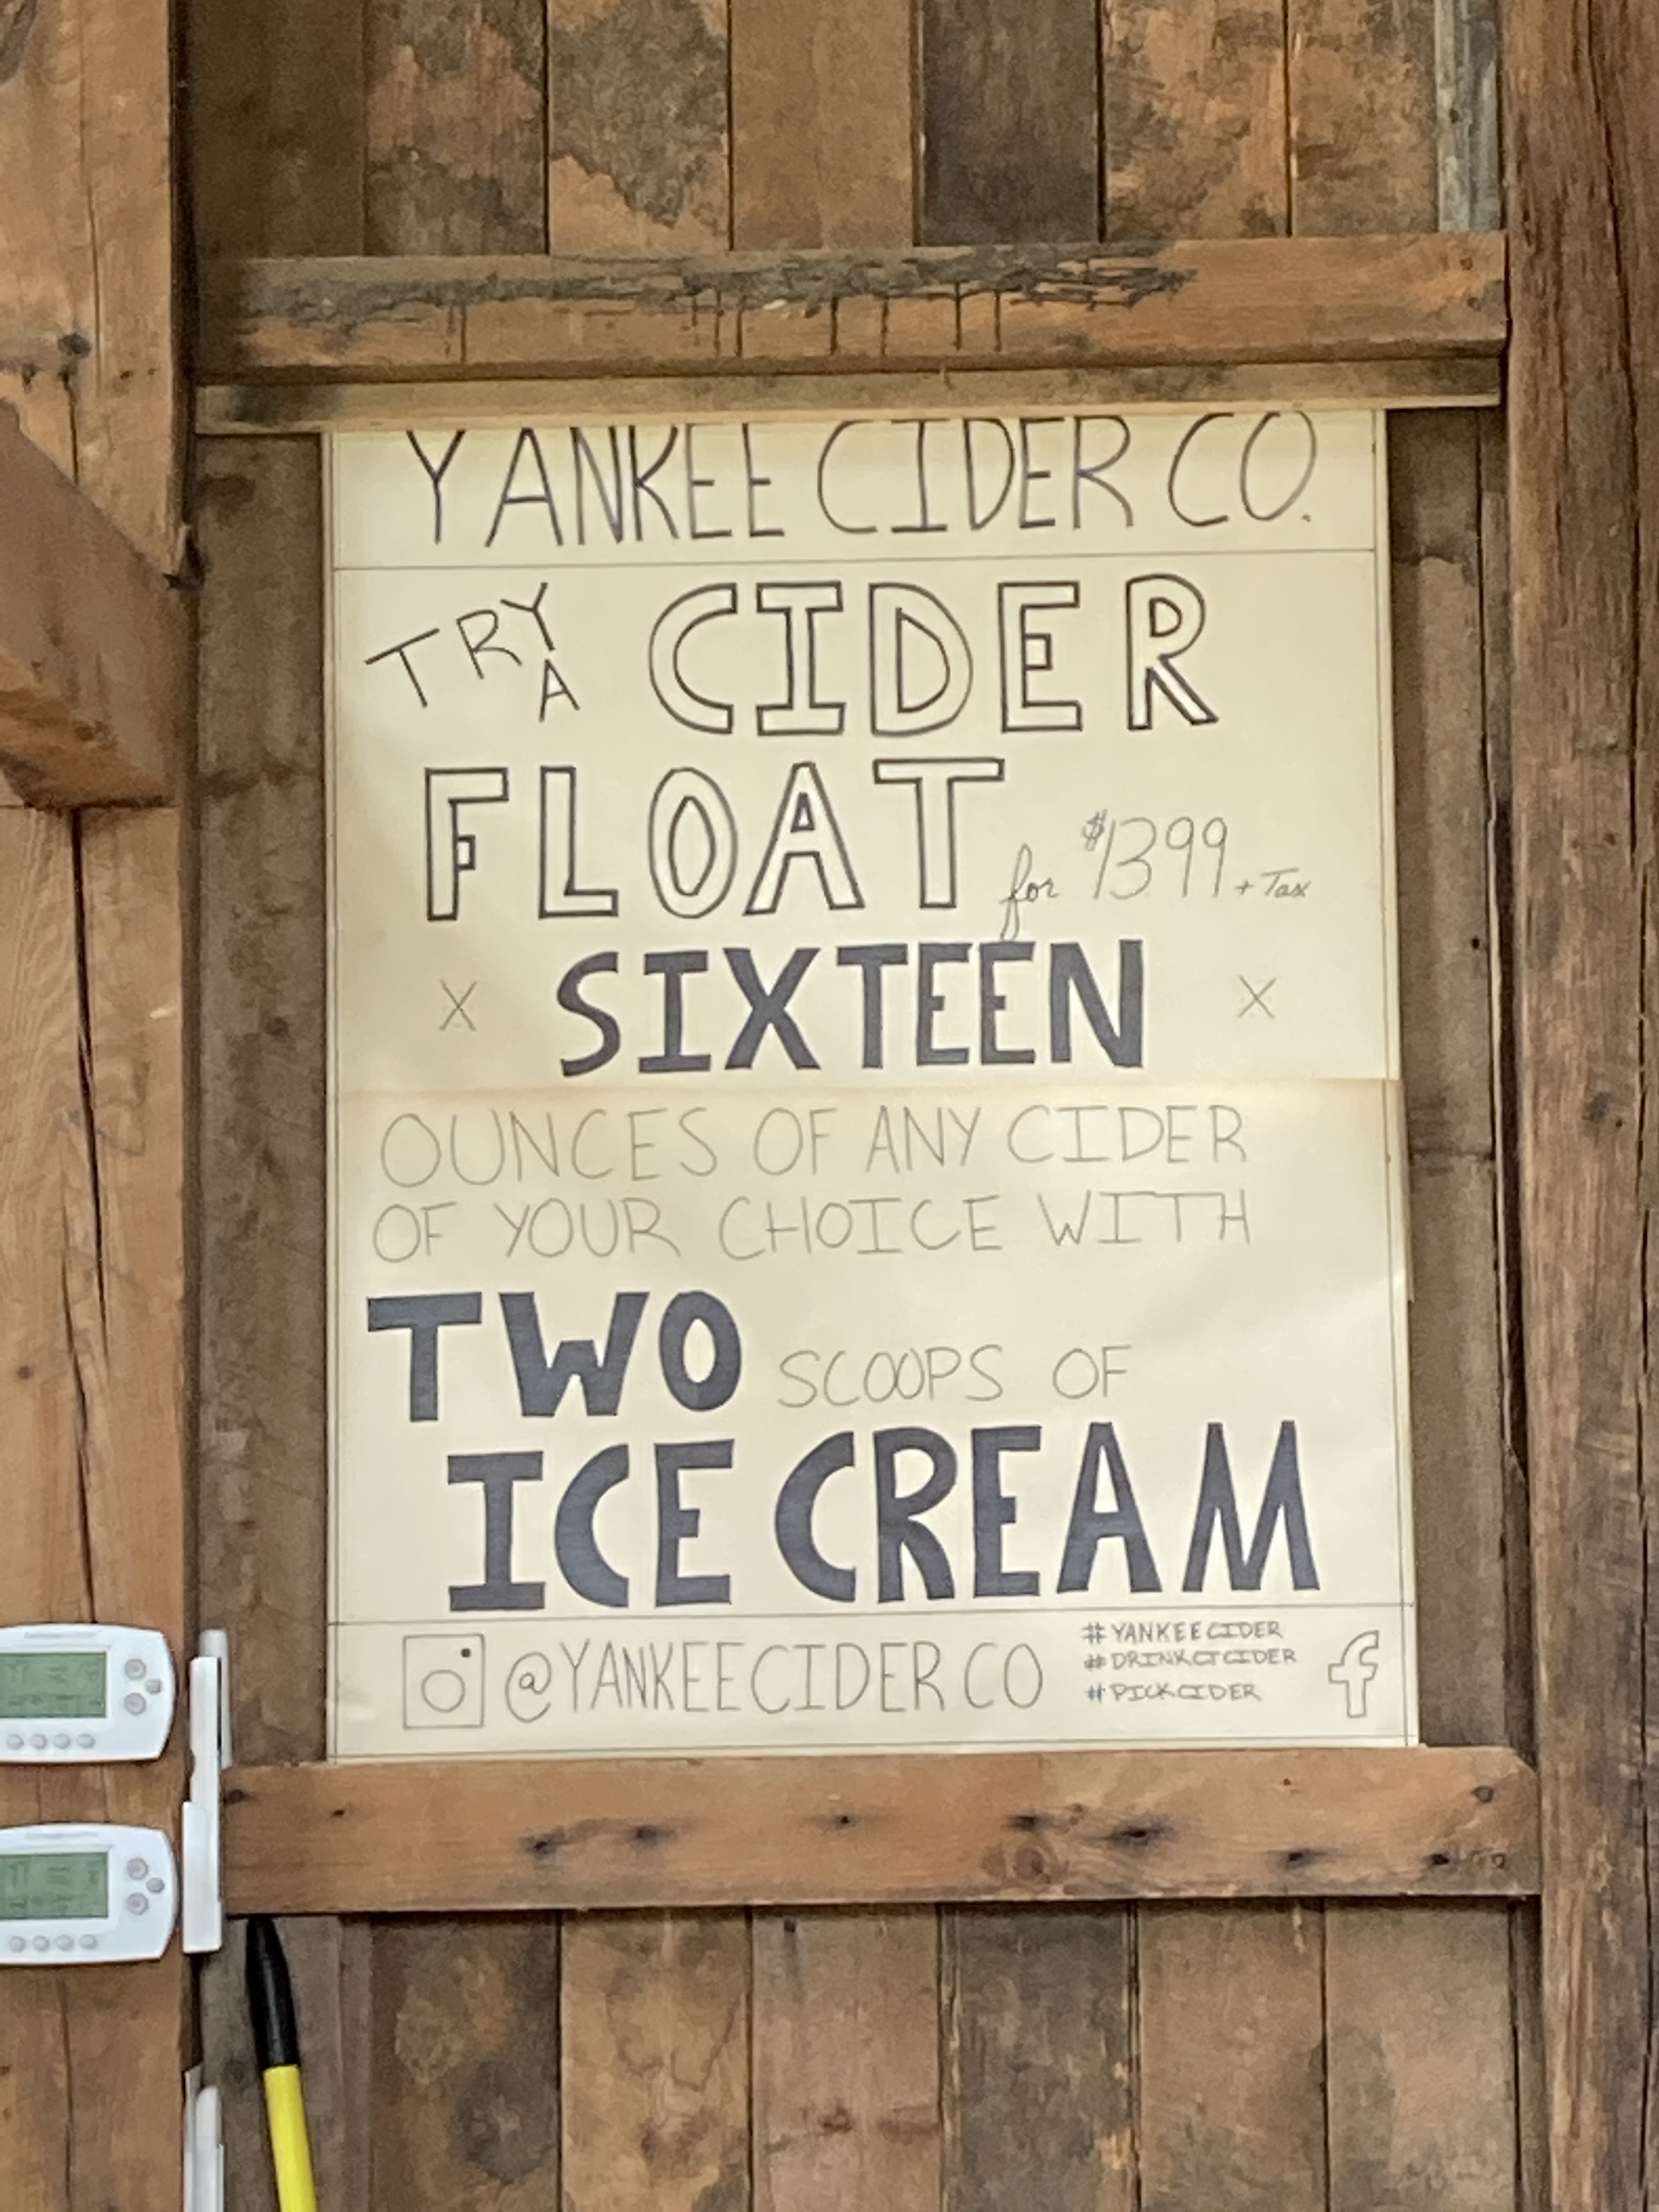 YANKEE CIDER CO.
TRY A CIDER
FLOAT for $1399 + Tax
X SIXTEEN X
OUNCES OF ANY CIDER
OF YOUR CHOICE WITH
TWO SCOOPS OF
ICE CREAM
@YANKEECIDERCO
#YANKEECIDER
#DRINKCTCIDER
#PICKCIDER